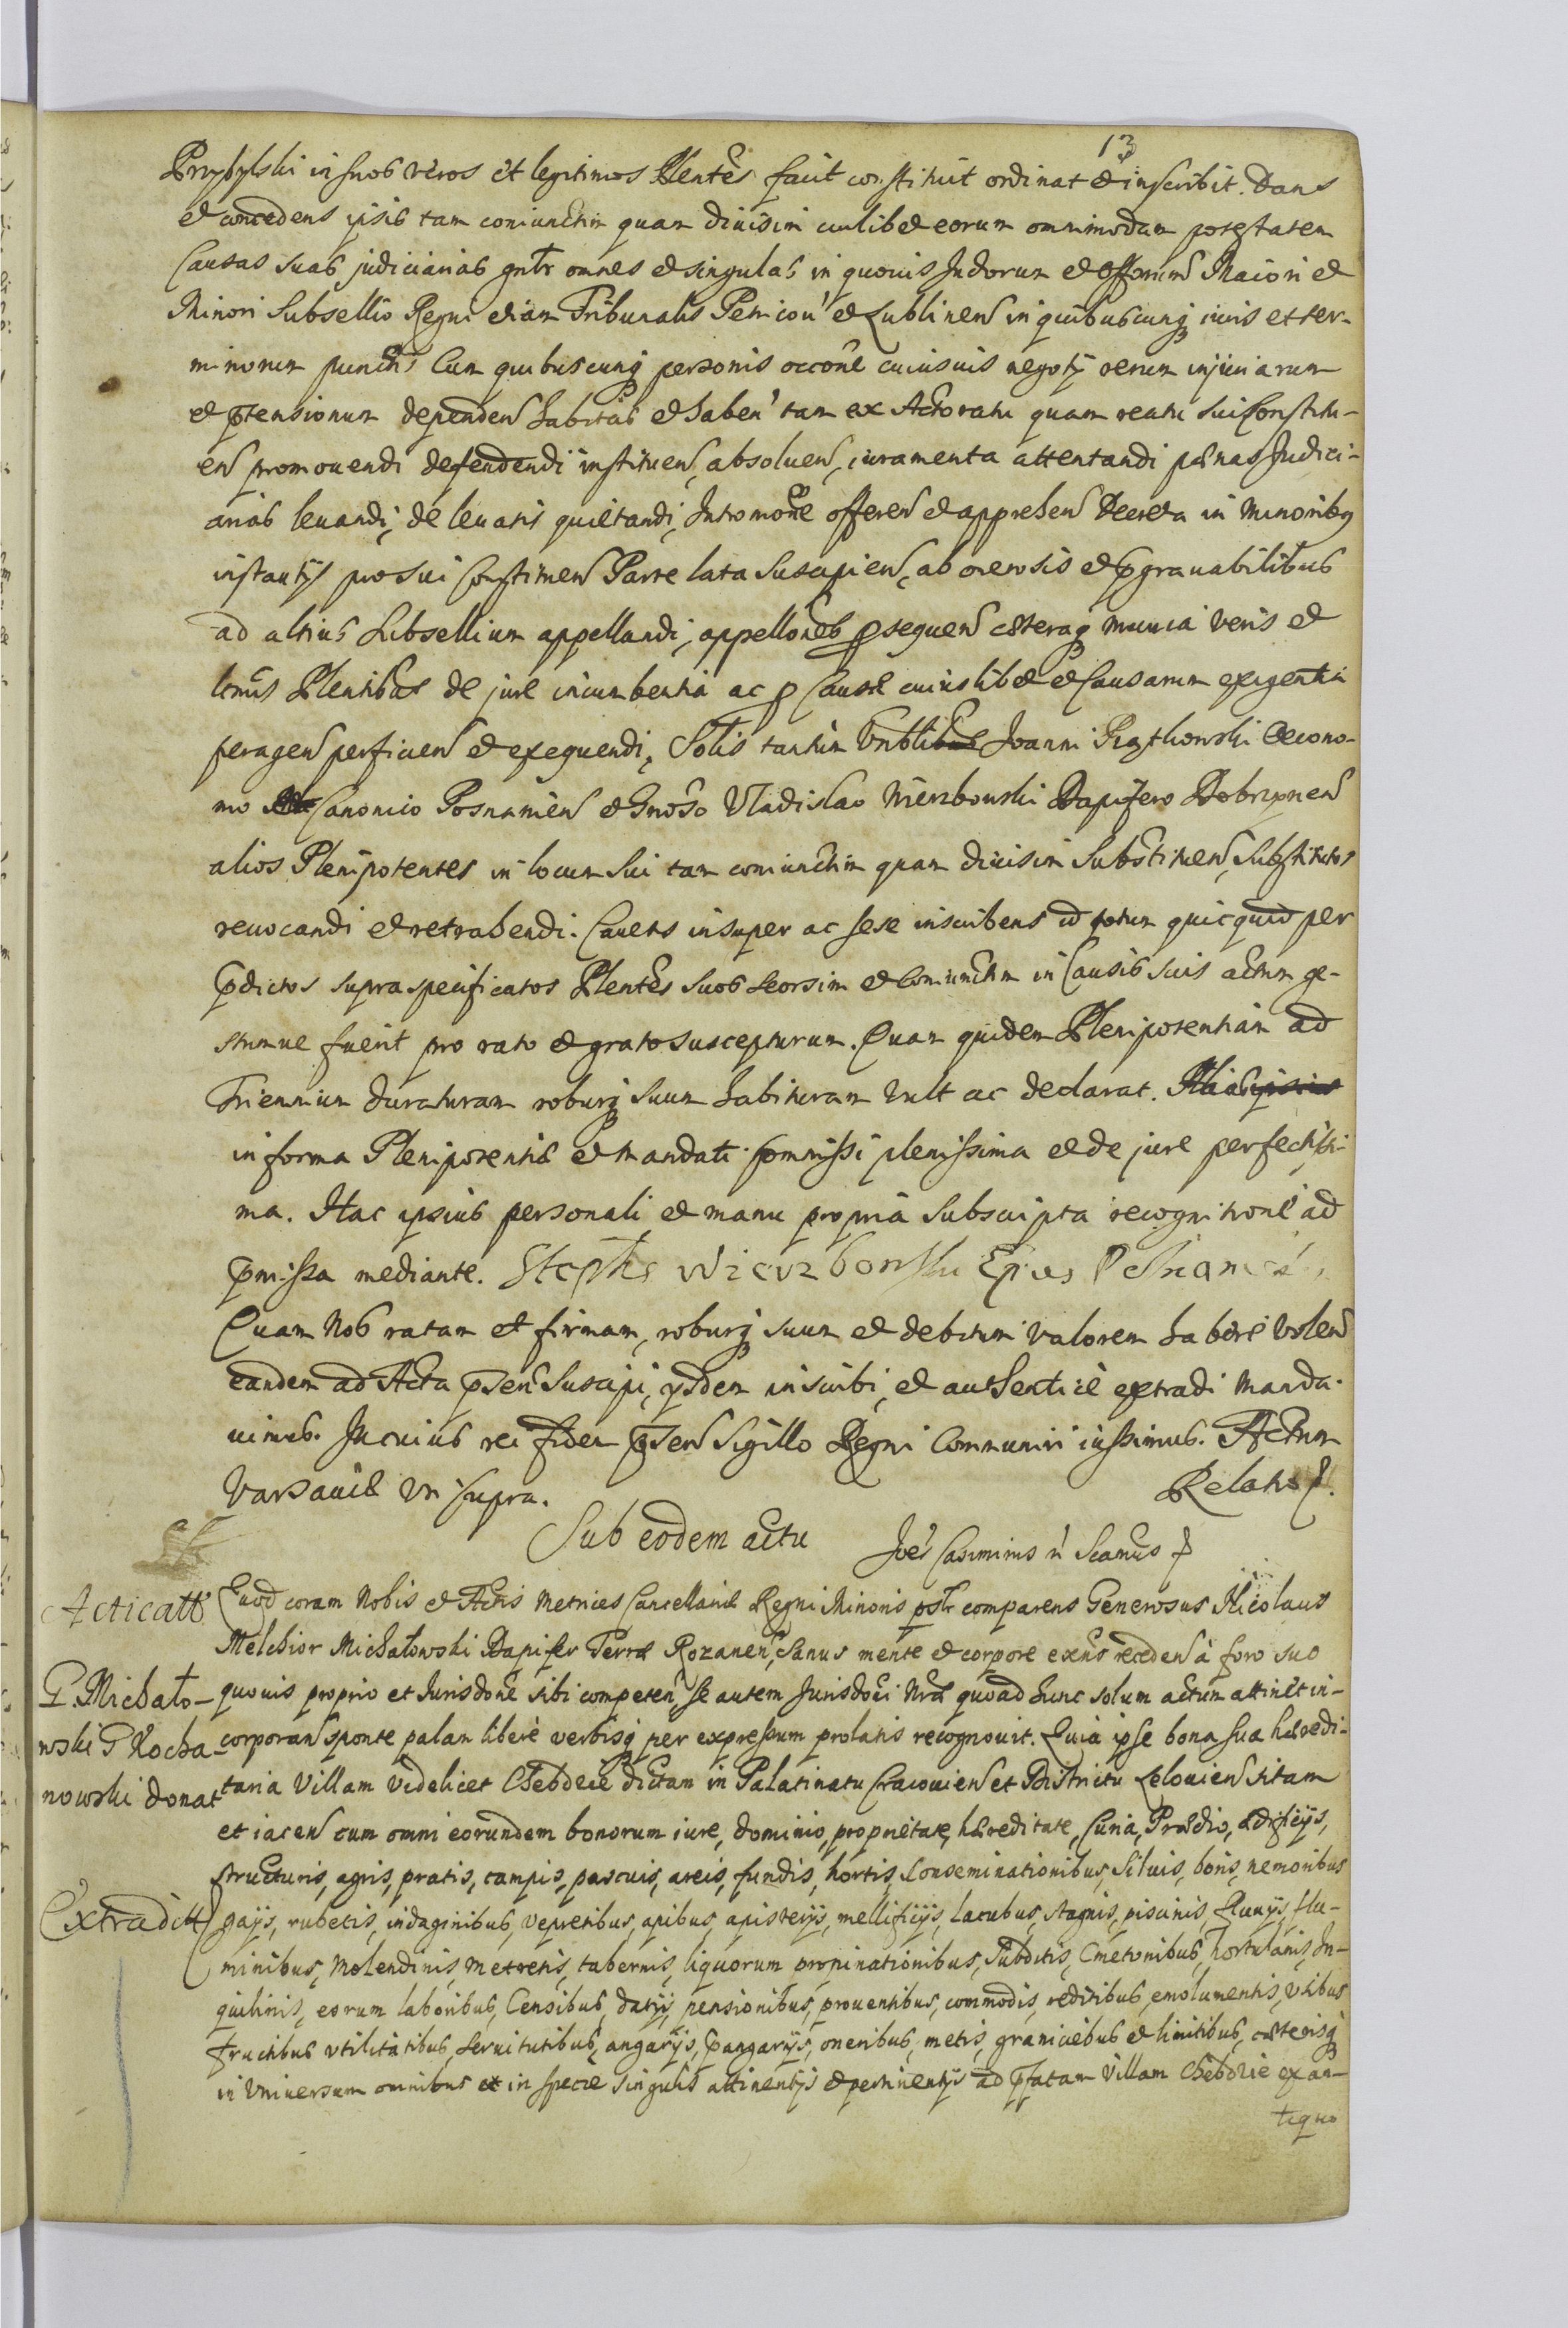 13
Przybylski in suos veros et legitimos Plentes facit constituit ordinat et inscribit. Dans
et concedens ipsis tam coniunctim quam diuisim cuilibet eorum omnimodam potestatem
Causas suas judiciarias gnlr omnes et singulas in quouis Judiorum et Offiorum Maiori et
Minori Subsellio Regni etiam Tribunalis Petricou et Lublinen in quibuscunq iuris et ter-
minorum punctis Cum quibuscunq personis occone cuiusuis negotij rerum injuriarum
et ptensionum dependen habitas et haben tam ex Actoratu quam reatu sui Constitu-
en promouendi defendendi instituen, absoluen, iuramenta attentandi pænas Judici-
arias leuandi, de leuatis quietandi, Intromone offeren et apprehen Decreta in Minoribq
instantijs pro sui Constituen Parte lata Suscipien, ab onerosis et pgrauabilibus
ad altius Subsellium appellandi, appellones psequen cæteraq munia veris et
ltmis Plentibus de jure incumbentia ac p Causæ cuiuslibet et Causarum exigentia
peragen perficien et exequendi, Solis tantum Vnblibus Joanni Oecono-
mo Canonico Posnanien et Gnoso Vladislao Wierzbowski Dapifero Dobrzynen
alios Plenipotentes in locum sui tam coniunctim quam diuisim Substituen, Substitutos
reuocandi et retrahendi. Cauens insuper ac sese inscribens id totum quicquid per
pdictos supra specificatos Plentes suos seorsim et coniunctim in Causis suis actum ge-
stumue fuerit pro rato et grato suscepturum. Quam quidem Plenipotentiam ad
Triennium duraturam roburq suum habituram vult ac declarat.
in forma Plenipotentiæ et mandati omnissi plenissima et de jure perfectissi-
ma. Hac ipsius personali et manu propria subscripta recognitione ad
pmissa mediante. Stephs Wierzbowski Epus Posnanie
Quam Nos ratam et firmam, roburq suum et debitum valorem habere volen
eandem ad Acta psen suscipi, ysdem inscribi, et authentice extradi manda-
uimus. In cuius rei fidem psen Sigillo Regni Communiri iussimus. Actum
Varsauiæ Vt supra.
Relatio
Sub eodem actu
Joes Casimirus
Acticatt
Quod coram Nobis et Actis Metrices Cancellariæ Regni Minoris pslr comparens Generosus Nicolaus
Melchior Michałowski Dapifer Terræ Rozanen, sanus mente et corpore exns receden à foro suo
G. Michało-
quouis proprio et Jurisdone sibi competen, se autem Jurisdoni Nræ quoad hunc solum actum attinet in-
wski G Kocha-
corporan sponte palam liberè verbisq per expressum prolatis recognouit. Quia ipse bona sua hæredi-
nowski donat
taria Villam videlicet Chebdzie dictam in Palatinatu Cracouien et Districtu Lelouien sitam
et iacen cum omni eorundem bonorum iure, dominio, proprietate, hæreditate, Curia, Prædio, ædificijs,
structuris, agris, pratis, campis, pascuis, areis, fundis, hortis, Conseminationibus, Siluis, boris, nemoribus
Extraditt
gaijs, rubetis, indaginibus, vepretibus, apibus, apisterijs, mellificijs, lacubus, stagnis, piscinis fluuijs, flu-
minibus, Molendinis, Metretis, tabernis, liquorum propinationibus, Subditis, Cmetonibus, hortulanis, In-
quilinis, eorum laboribus, Censibus, datijs, pensionibus, prouentibus, commodis, reditibus, emolumentis, vtibus
fructibus vtilitatibus, seruitutibus, angarijs, pangarijs, oneribus, metis, graniciebus et limitibus, cæterisq
in Vniuersum omnibus et in specie singulis attinentijs et pertinentijs ad pfatam Villam Chebdzie ex an-
tiquo